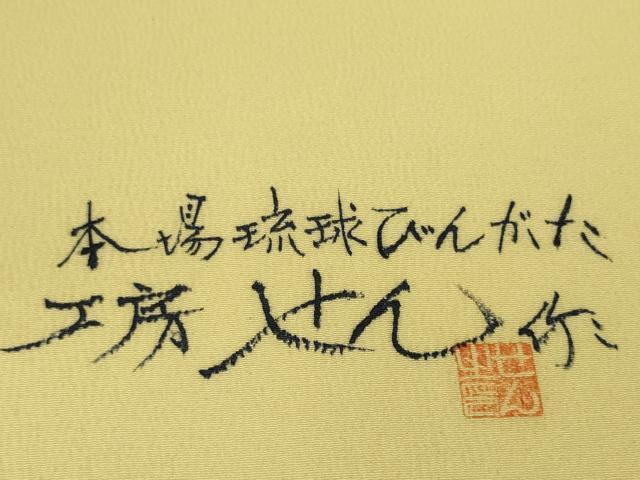 本場琉球びんがた
工房 せん 作